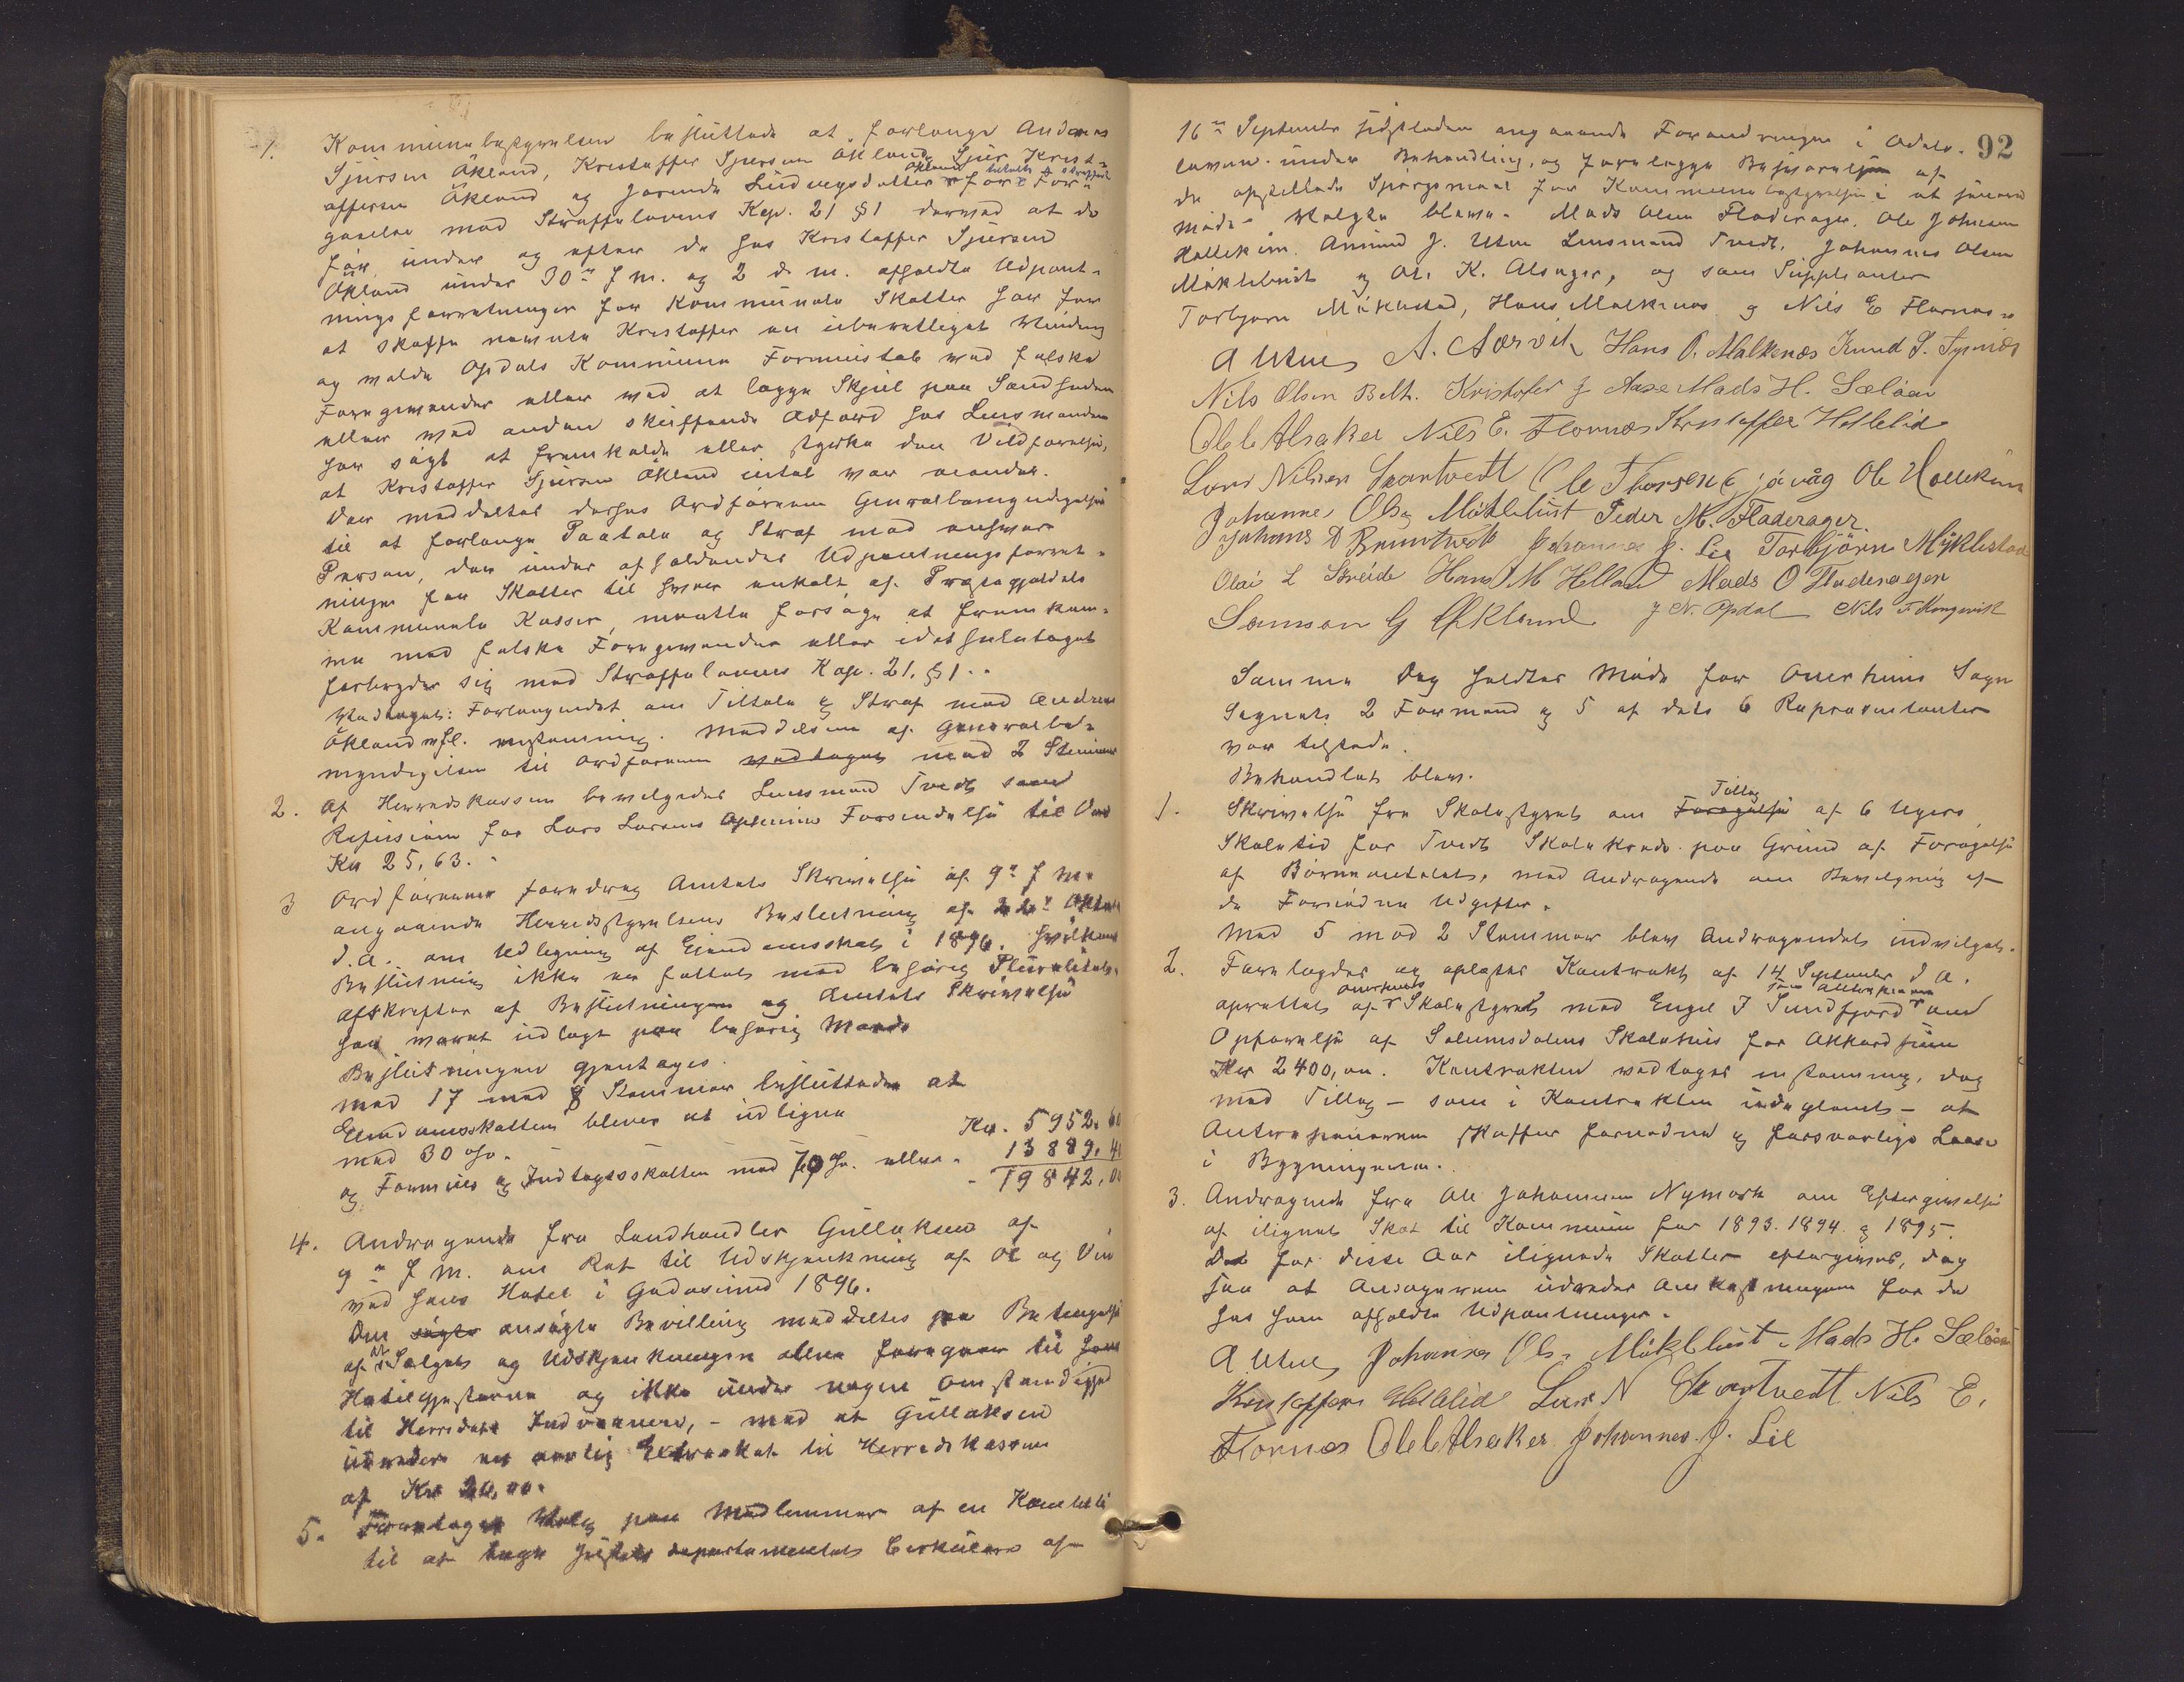 1. Kommunebestyrelsen besluttede at forlange Anders
Sjursen Økland, Kristoffer Sjursen Økland, Sjur Krist-
offersen Økland og Jorunde Ludvigsdatter Økland tiltalte & straffede for For-
gaaelse mod Straffelovens Kap. 21 §1 derved at de
før, under og efter de hos Kristoffer Sjursen
Økland under 30te f. m. og 2 d. m. afholdte Udpant-
ningsforretninger for kommunale Skatter har for
at skaffe nævnte Kristoffer en uberettiget Vinding
og volde Opdals Kommune Formuestab ved falske
Foregivender eller ved at lægge Skjul paa Sandheden
eller ved anden skuffende Adfærd hos Lensmanden
har søgt at fremkalde eller styrke den Vildfarelse,
at Kristoffer Sjursen Økland intet var eiendes.
Der meddeltes derhos Ordføreren Generalbemyndigelse
til at forlange Paatale og Straf mod enhver
Person, der under afholdendes Udpantningsforret-
ninger for Skatter til hver enkelt af Præstegjeldets
kommunale Kasser, maatte forsøge at fremkom-
me med falske Foregivender eller idethele taget
forbryder sig mod Straffelovens Kap. 21, §1.
Vedtaget: Forlangendet om Tiltale & Straf mod Anders
Økland mfl. enstemmig. Meddelsen af Generalbe-
myndigelsen til Ordføreren vedtaget mod 2 Stemmer
2. Af Herredskassen bevilgedes Lensmand Tvedt som
Refusion for Lars Larsens Forsendelse til Vos
Kr 25,63.
3 Ordføreren foredrog Amtets Skrivelse af 9de f. m.
angaaende Herredsstyrelsens Beslutning af 22de Oktober
d. A. om Udligning af Eiendomsskat i 1896. hvilken
Beslutning ikke er fattet med behørig Pluralitet.
Afskrifter af Beslutningen og Amtets Skrivelse
har været udlagt paa behørig Maade
Beslutningen gjentages.
Med 17 mod 8 Stemmer besluttedes at
Eiendomsskatten bliver at udligne
med 30 % Kr. 5952.60
og Formues og Indtægtsskatten med 70 % eller - 13889,40
- 19842,00
4. Andragende fra Landhandler Gullaksen af
9de f. M. om Ret til Udskjænkning af Øl og Vin
ved hans Hotel i Godøsund 1896.
Den søgte ansøgte Bevilling meddeltes paa Betingelse
af at Salget og Udskjænkningen alene foregaar til
Hotelgjesterne og ikke under nogen Omstændighed
til Herredets Indvaanere, - med at Gullaksen
udreder en aarlig Extraskat til Herredskassen
af Kr 20,00.
5. Foretaget Valg paa Medlemmer af en Komite
til at tage Justits departementets Cirkulære af
92
16de September sidstleden angaaende Forandringer i Odels-
loven under Behandling, og forelægge Besvarelsen af
de opstillede Spørgsmaal for Kommunebestyrelsen i et senere
Møde. Valgte blev: Mads Olsen Fladerager, Ole Johnsen
Hollekim. Amund J. Utne Lensmand Tvedt, Johannes Olsen
Møklebust og Ole K. Alsager, og som Supplianter
Torbjørn Møklestad, Hans Malkenes og Nils E Flornes
A Utne A. Aarvik Hans O. Malkenes Knud S. Tysnæs
Nils Olsen Belt. Kristofer J Aase Mads H. Sæløen
Ole C Alsaker Nils E. Flornæs Kristoffer Hellelid
Lars Nilsen Skartvedt Ole Thorsen Gjøvåg Ole Hollekim
Johannes Olsen Møklebust Peder M. Fladerager.
Johans D Bruntvedt Johannes J. Lie Torbjörn Myklestad
Olai L Skreide Hans M Helland Mads O Fladerager
Samson G Økland J N. Opdal Nils T Kongsvik
Samme Dag holdtes Møde for Onerheims Sogn
Sognets 2 Formænd og 5 af dets 6 Repræsentanter
var tilstede.
Behandlet blev.
1. Skrivelse fra Skolestyret om Forøgelse Tillæg af 6 Ugers
Skoletid for Tvedt Skolekreds paa Grund af Forøgelse
af Børneantallet, med Andragende om Bevilgning af
de Fornødne Udgifter.
Med 5 mod 2 Stemmer blev Andragendet indvilget.
2. Forelagdes og oplæstes Kontrakt af 14 September d. A.
oprettet af Onerheims Skolestyret med Engel J Sundfjord som Entreprenør om
Opførelse af Solemsdalens Skolehus for Akkordsum
Kr 2400,00. Kontrakten vedtages enstemmig, dog
med Tillæg - som i Kontrakten indeglemt - at
Antreprenøren skaffer fornødne og forsvarlige Laase
i Bygningerne.
3. Andragende fra Ole Johannesen Nymark om Eftergivelse
af ilignet Skat til Kommunen for 1893. 1894. & 1895.
Det for disse Aar ilignede Skatter eftergives, dog
saa at Ansøgeren udreder Omkostningerne for de
hos ham afholdte Udpantninger.
A Utne Johannes Ols. Møklebust. Mads H. Sæløen
Kristoffer Hellelid Lars N Skartvedt Nils E.
Flornæs Ole C Alsaker Johannes. J. Lie